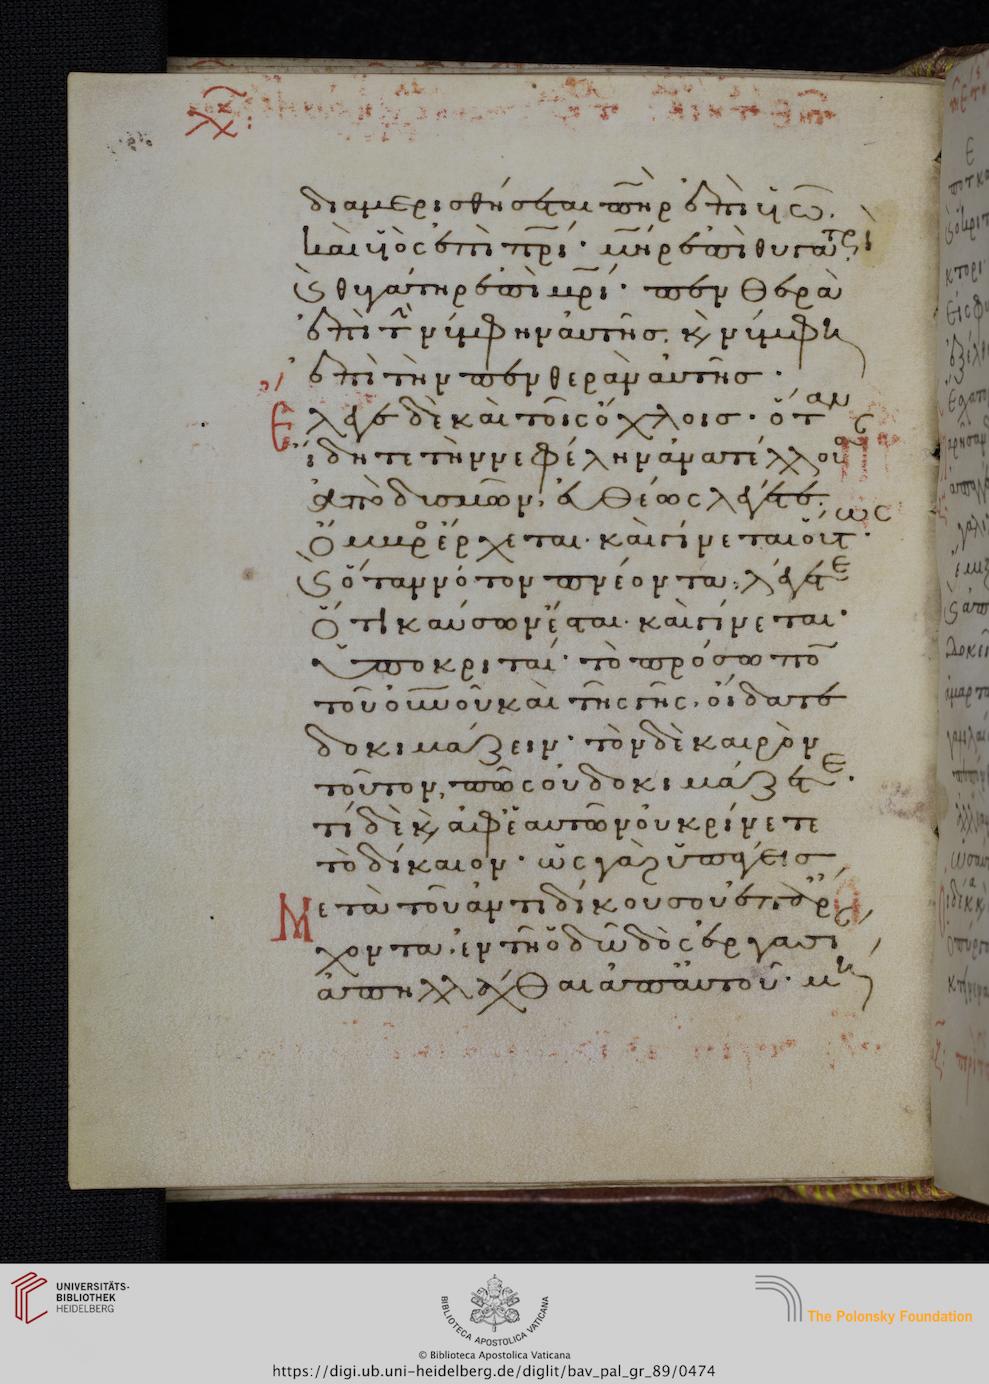 διαμερισθήσεται πῆρ ἐπὶ υἱῶ.
καὶ υἱὸς ἐπὶ πρί· μῆρ ἐπὶ θυγατρί
καὶ θυγάτηρ ἐπὶ μρί· πενθερὰ
ἐπὶ τὴν νύμφην αὐτῆς. καὶ νύμφη
ἐπὶ τὴν πενθερὰν αὐτῆς.
Ἔλεγε δὲ καὶ τοῖς ὄχλοις· ὅταν
ἴδητε τὴν νεφέλην ἀνατέλλουσαν
ἀπὸ δυσμῶν, εὐθέως λέγετε.
Ὄμβρος ἔρχεται· καὶ γίνεται οὕτως.
καὶ ὅταν νότον πνέοντα, λέγετε
Ὅτι καύσων ἔσται· καὶ γίνεται·
Ὑποκριταί· τὸ πρόσωπον
τοῦ οὐνοῦ καὶ τῆς γῆς, οἴδατε
δοκιμάζειν· τὸν δὲ καιρὸν
τοῦτον, πῶς οὐ δοκιμάζετε.
τί δὲ καὶ ἀφ' ἑαυτῶν οὐ κρίνετε
τὸ δίκαιον· ὡς γὰρ ὑπάγεις
Μετὰ τοῦ ἀντιδίκου σου ἐπ' ἄρ
χοντα. ἐν τῇ ὁδῷ δὸς ἐργασί
ἀπηλλάχθαι ἀπ' αὐτοῦ· μή
UNIVERSITÄTS-
BIBLIOTHEK
HEIDELBERG
BIBLIOTECA APOSTOLICA VATICANA
The Polonsky Foundation
© Biblioteca Apostolica Vaticana
https://digi.ub.uni-heidelberg.de/diglit/bav_pal_gr_89/0474